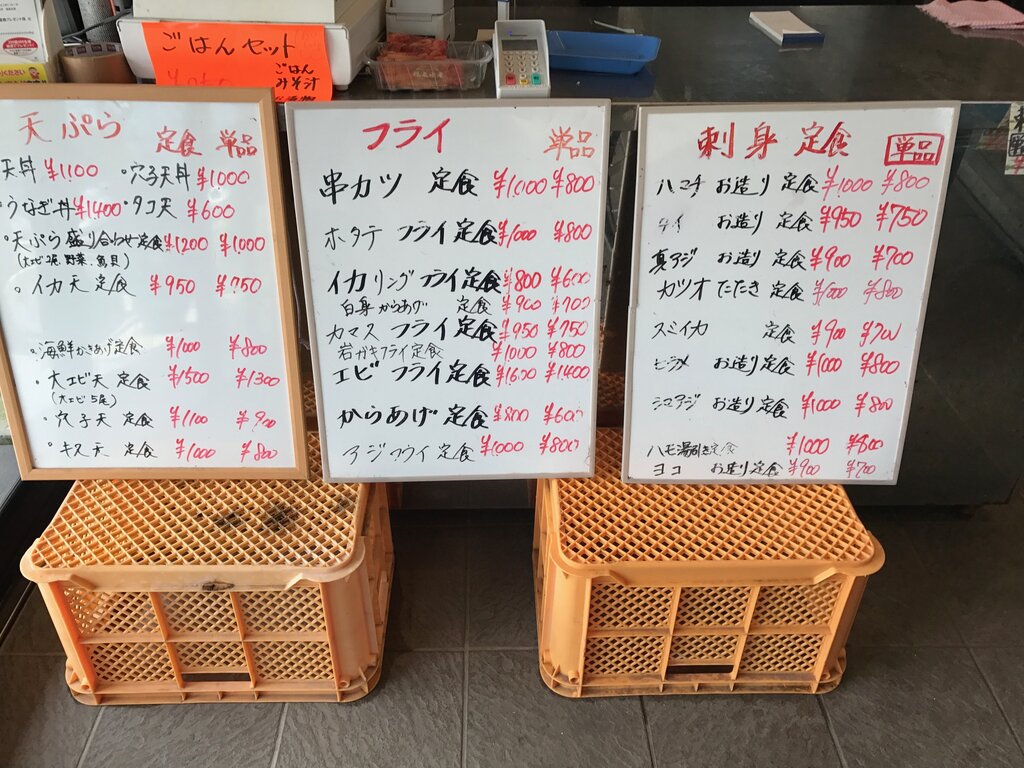 ごはんセット
ごはん
みそ汁
天ぷら
定食 単品
天丼 ¥1100 ・穴子天丼 ¥1000
・うなぎ丼 ¥1400 ・タコ天 ¥600
・天ぷら盛り合わせ定食 ¥1200 ¥1000
(大エビ2尾、野菜、魚貝)
・イカ天 定食 ¥950 ¥750
・海鮮かきあげ定食 ¥1000 ¥800
・大エビ天 定食 ¥1500 ¥1300
(大エビ5尾)
・穴子天 定食 ¥1100 ¥900
・キス天 定食 ¥1000 ¥800
フライ 単品
串カツ 定食 ¥1000 ¥800
ホタテ フライ定食 ¥1000 ¥800
イカリング フライ定食 ¥800 ¥600
白身からあげ 定食 ¥900 ¥700
カマス フライ定食 ¥950 ¥750
岩ガキフライ定食 ¥1000 ¥800
エビ フライ定食 ¥1600 ¥1400
からあげ 定食 ¥800 ¥600
アジフライ定食 ¥1000 ¥800
刺身 定食 単品
ハマチ お造り 定食 ¥1000 ¥800
タイ お造り 定食 ¥950 ¥750
真アジ お造り 定食 ¥900 ¥700
カツオ たたき 定食 ¥1000 ¥800
スミイカ 定食 ¥900 ¥700
ヒラメ お造り 定食 ¥1000 ¥800
シマアジ お造り 定食 ¥1000 ¥800
ハモ湯引き定食 ¥1000 ¥800
ヨコ お造り定食 ¥900 ¥700